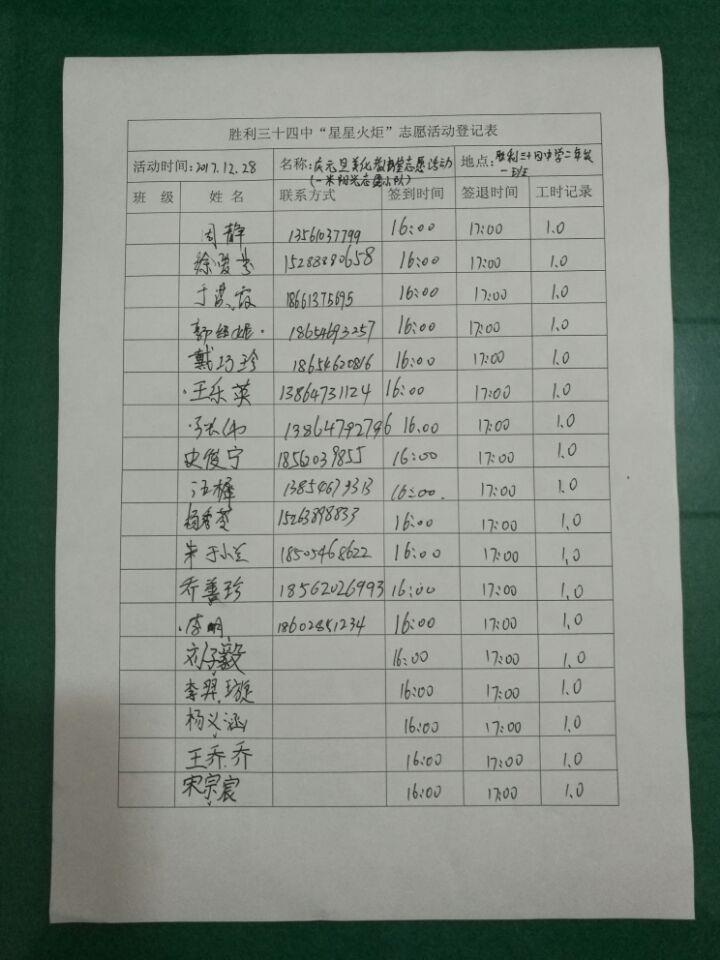 胜利三十四中“星星火炬”志愿活动登记表
活动时间:2017.12.28 名称:庆元旦美化教室志愿活动 (一米阳光志愿小队) 地点:胜利三十四中学二年级一班
班 级 姓 名 联系方式 签到时间 签退时间 工时记录
周静 13561037799 16:00 17:00 1.0
徐爱 15288880658 16:00 17:00 1.0
于 霞 18661375695 16:00 17:00 1.0
郭 18654693257 16:00 17:00 1.0
戴巧玲 18654620816 16:00 17:00 1.0
王乐英 13864731124 16:00 17:00 1.0
张伟 13864792796 16:00 17:00 1.0
史俊宁 18562039855 16:00 17:00 1.0
汪 13854679313 16:00 17:00 1.0
杨秀 15263898833 16:00 17:00 1.0
于小 18505468622 16:00 17:00 1.0
乔善珍 18562026993 16:00 17:00 1.0
李明 18602851234 16:00 17:00 1.0
刘子毅 16:00 17:00 1.0
李羿璇 16:00 17:00 1.0
杨义涵 16:00 17:00 1.0
王乔乔 16:00 17:00 1.0
宋宗宸 16:00 17:00 1.0